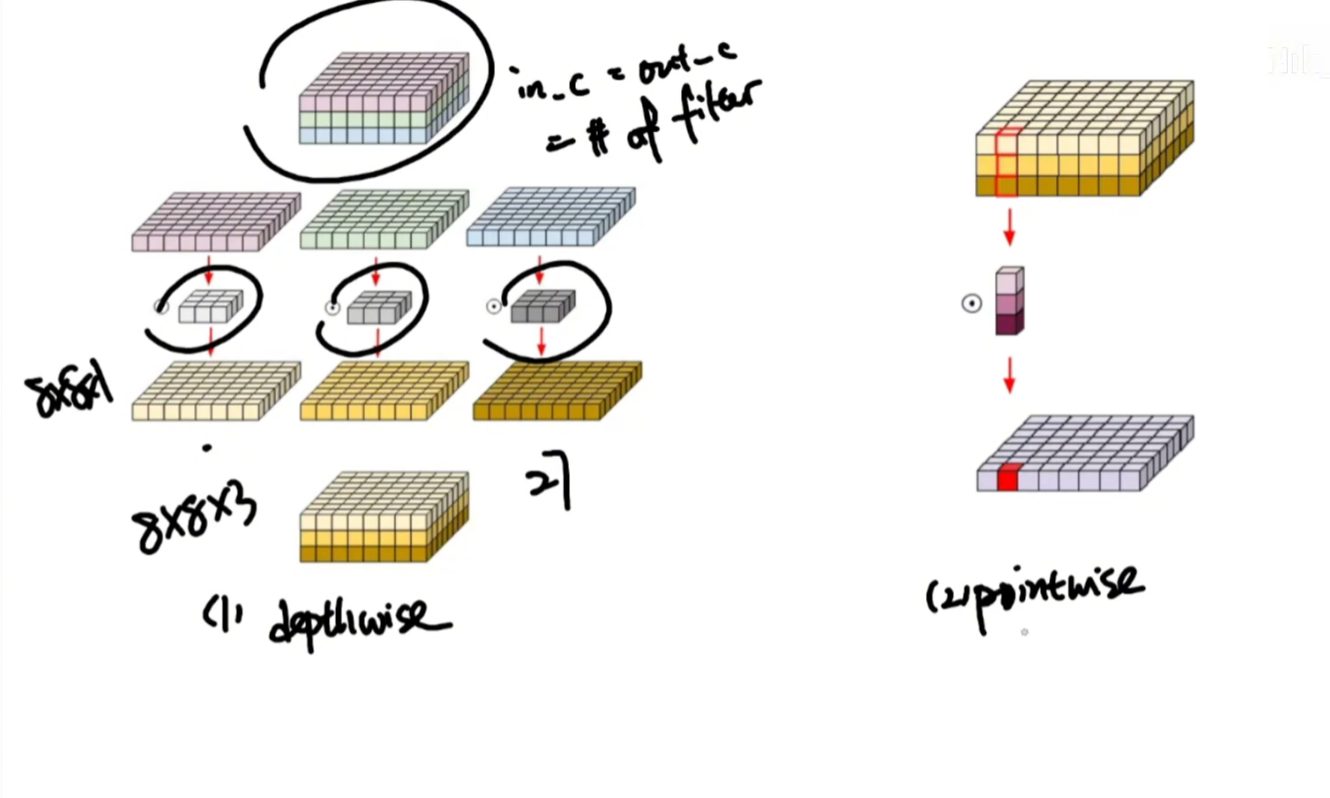 in_c = out_c
= # of filter
8x8x1
8x8x3
27
(1) depthwise
(2) pointwise